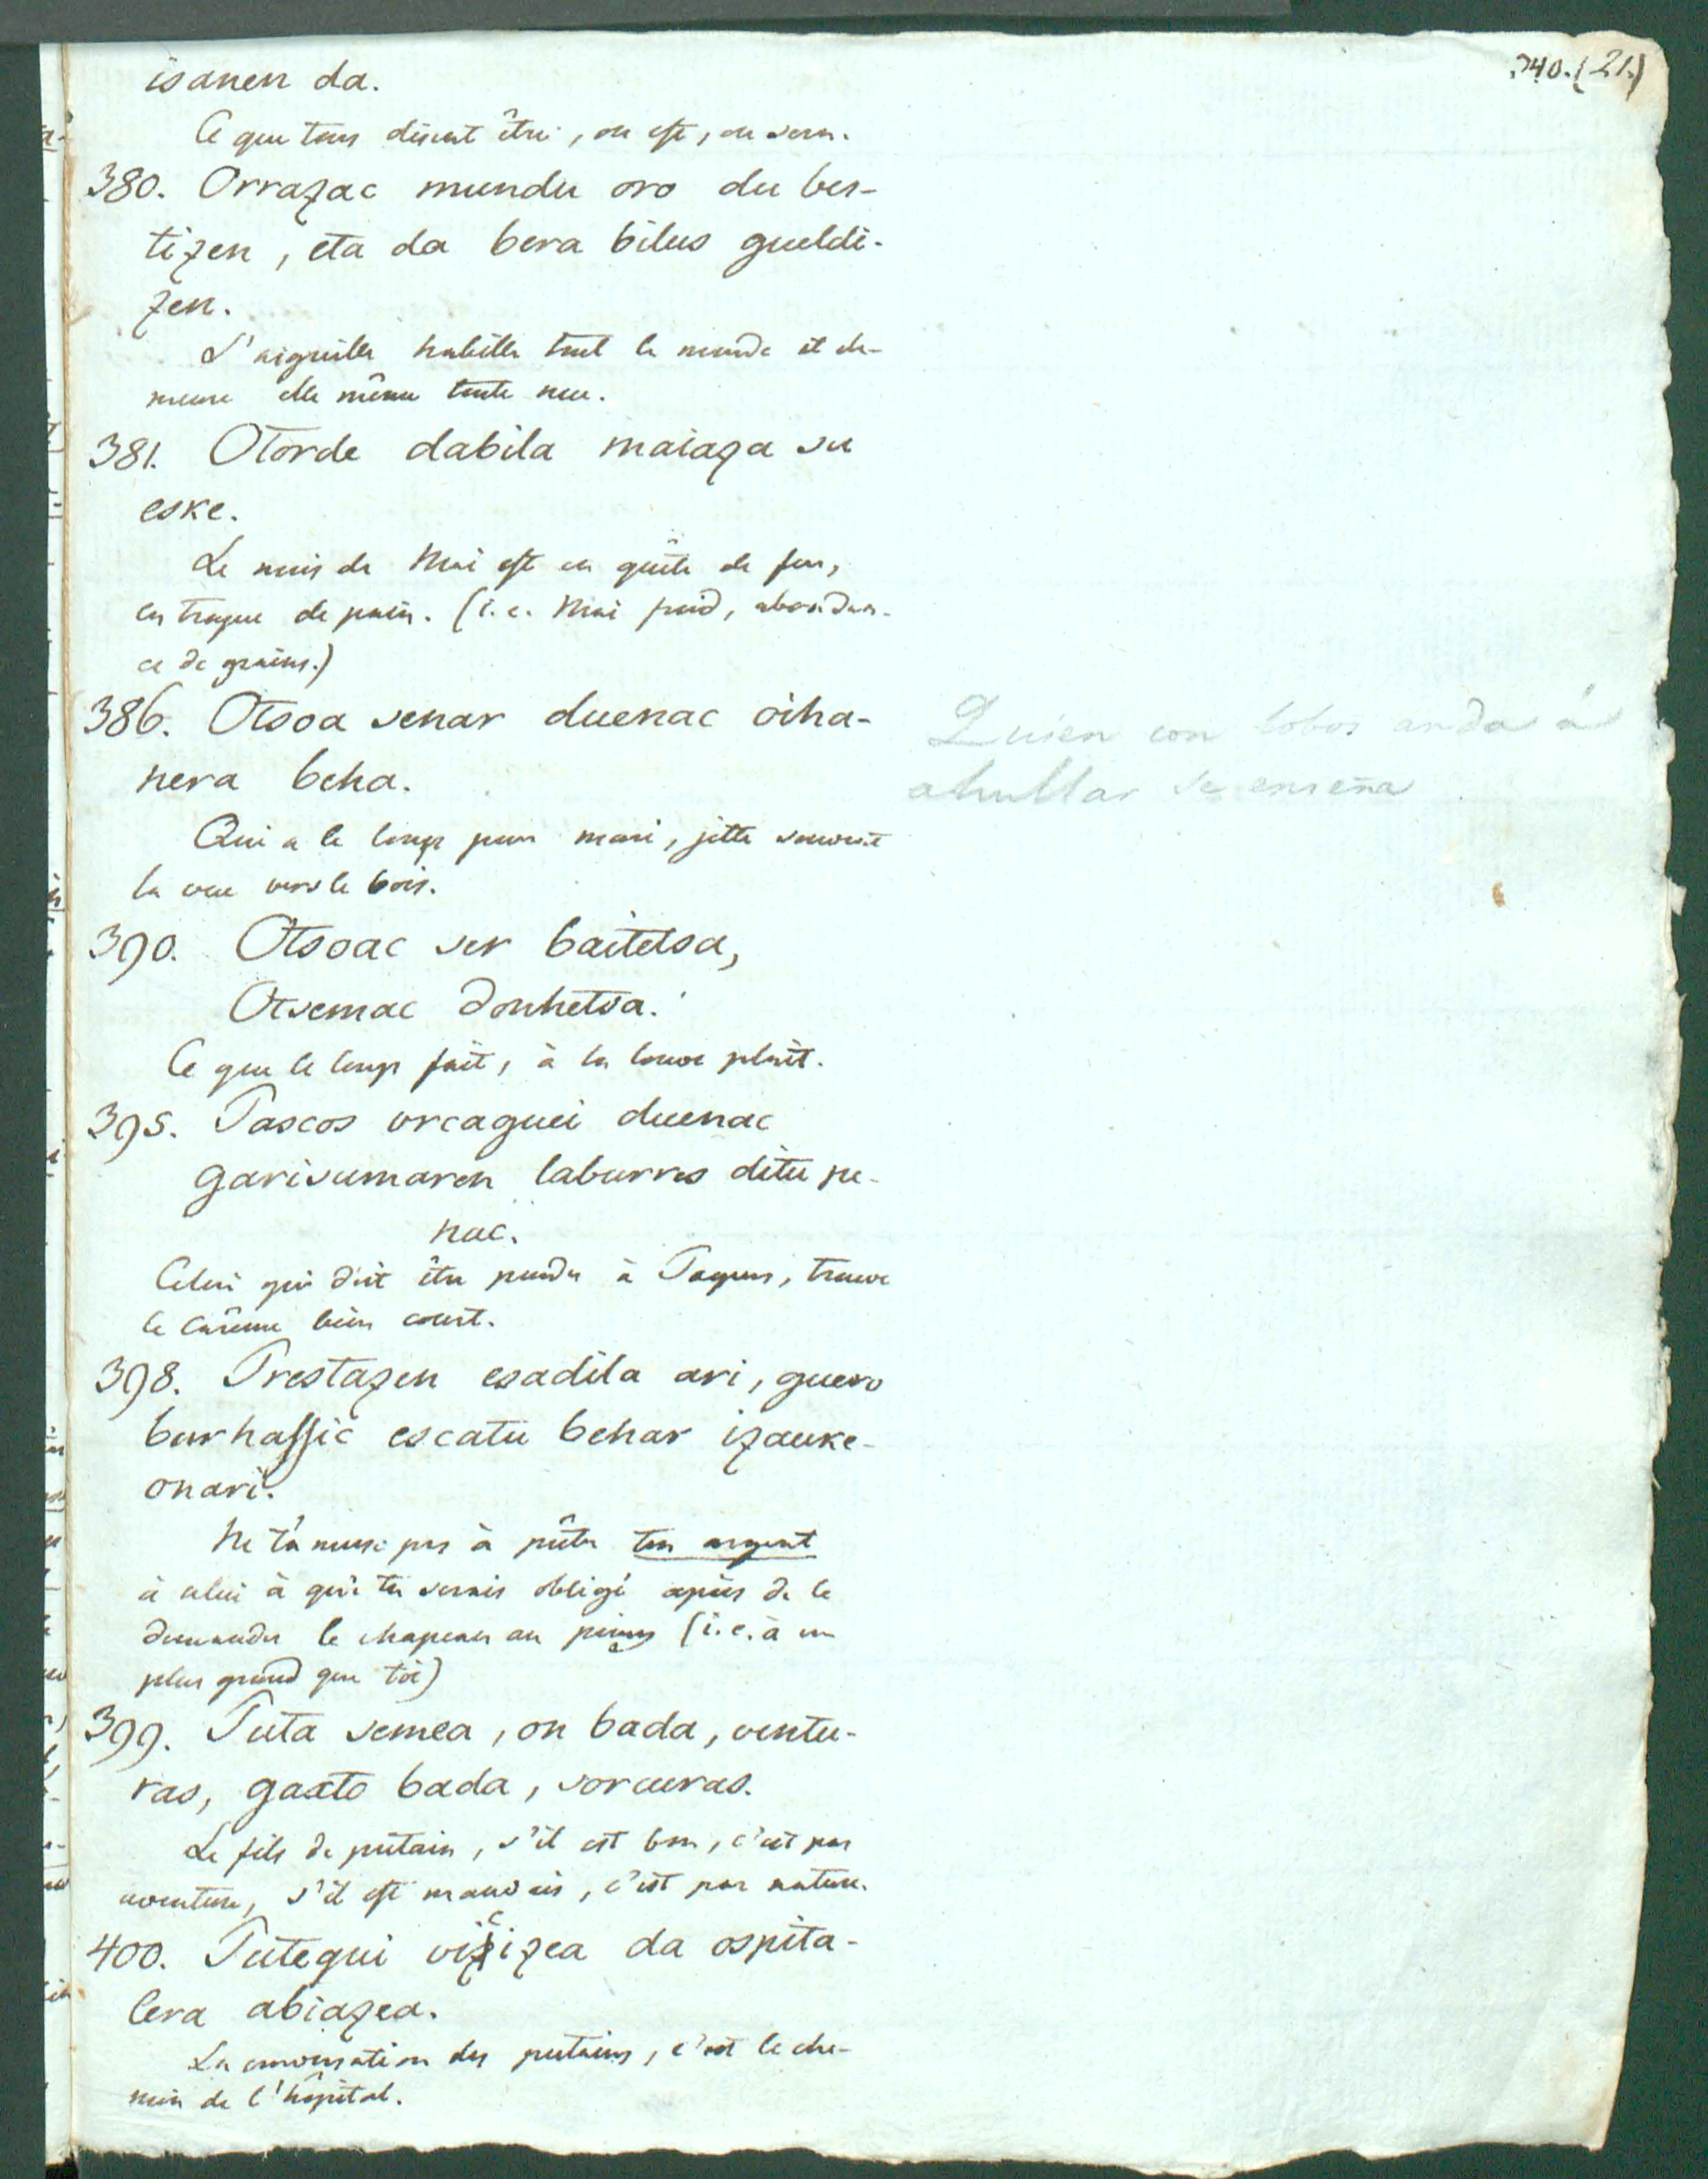 340. (21.)
isanen da.
Ce que tous disent être, ou est, ou sera.
380. Orrazac mundu oro du bes-
tizen, eta da bera bilus gueldi-
zen.
L'aiguille habille tout le monde et de-
meure elle même toute nue.
381. Otorde dabila maiaza su
eske.
Le mois de Mai est en quête de feu,
en troque de pain. (i. e. Mai froid, abondan-
ce de grains.)
386. Otsoa senar duenac oiha-
nera beha.
Qui a le loup pour mari, jette souvent
la vue vers le bois.
Quien con lobos anda á
ahullar se enseña
390. Otsoac ser baitetsa,
Otsemac donhetsa.
Ce que le loup fait, à la louve plaît.
395. Pascos urcaguei duenac
garisumaren laburres ditu pe-
nac.
Celui qui doit être pendu à Paques, trouve
le Carême bien court.
398. Prestazen esadila ari, guero
burhassic escatu behar izauke-
onari.
Ne t'amuse pas à prêter ton argent
à celui à qui tu serais obligé après de le
demander le chapeau au poing (i. e. à un
plus grand que toi)
399. Puta semea, on bada, ventu-
ras, gaxto bada, sorcuras.
Le fils de putain, s'il est bon, c'est par
aventure, s'il est mauvais, c'est par nature.
400. Putegui vicizea da ospita-
lera abiazea.
La conversation des putains, c'est le che-
min de l'hôpital.